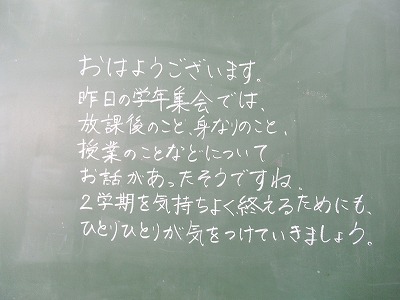 おはようございます。
昨日の学年集会では、
放課後のこと、身なりのこと、
授業のことなどについて
お話があったそうですね。
2学期を気持ちよく終えるためにも、
ひとりひとりが気をつけていきましょう。